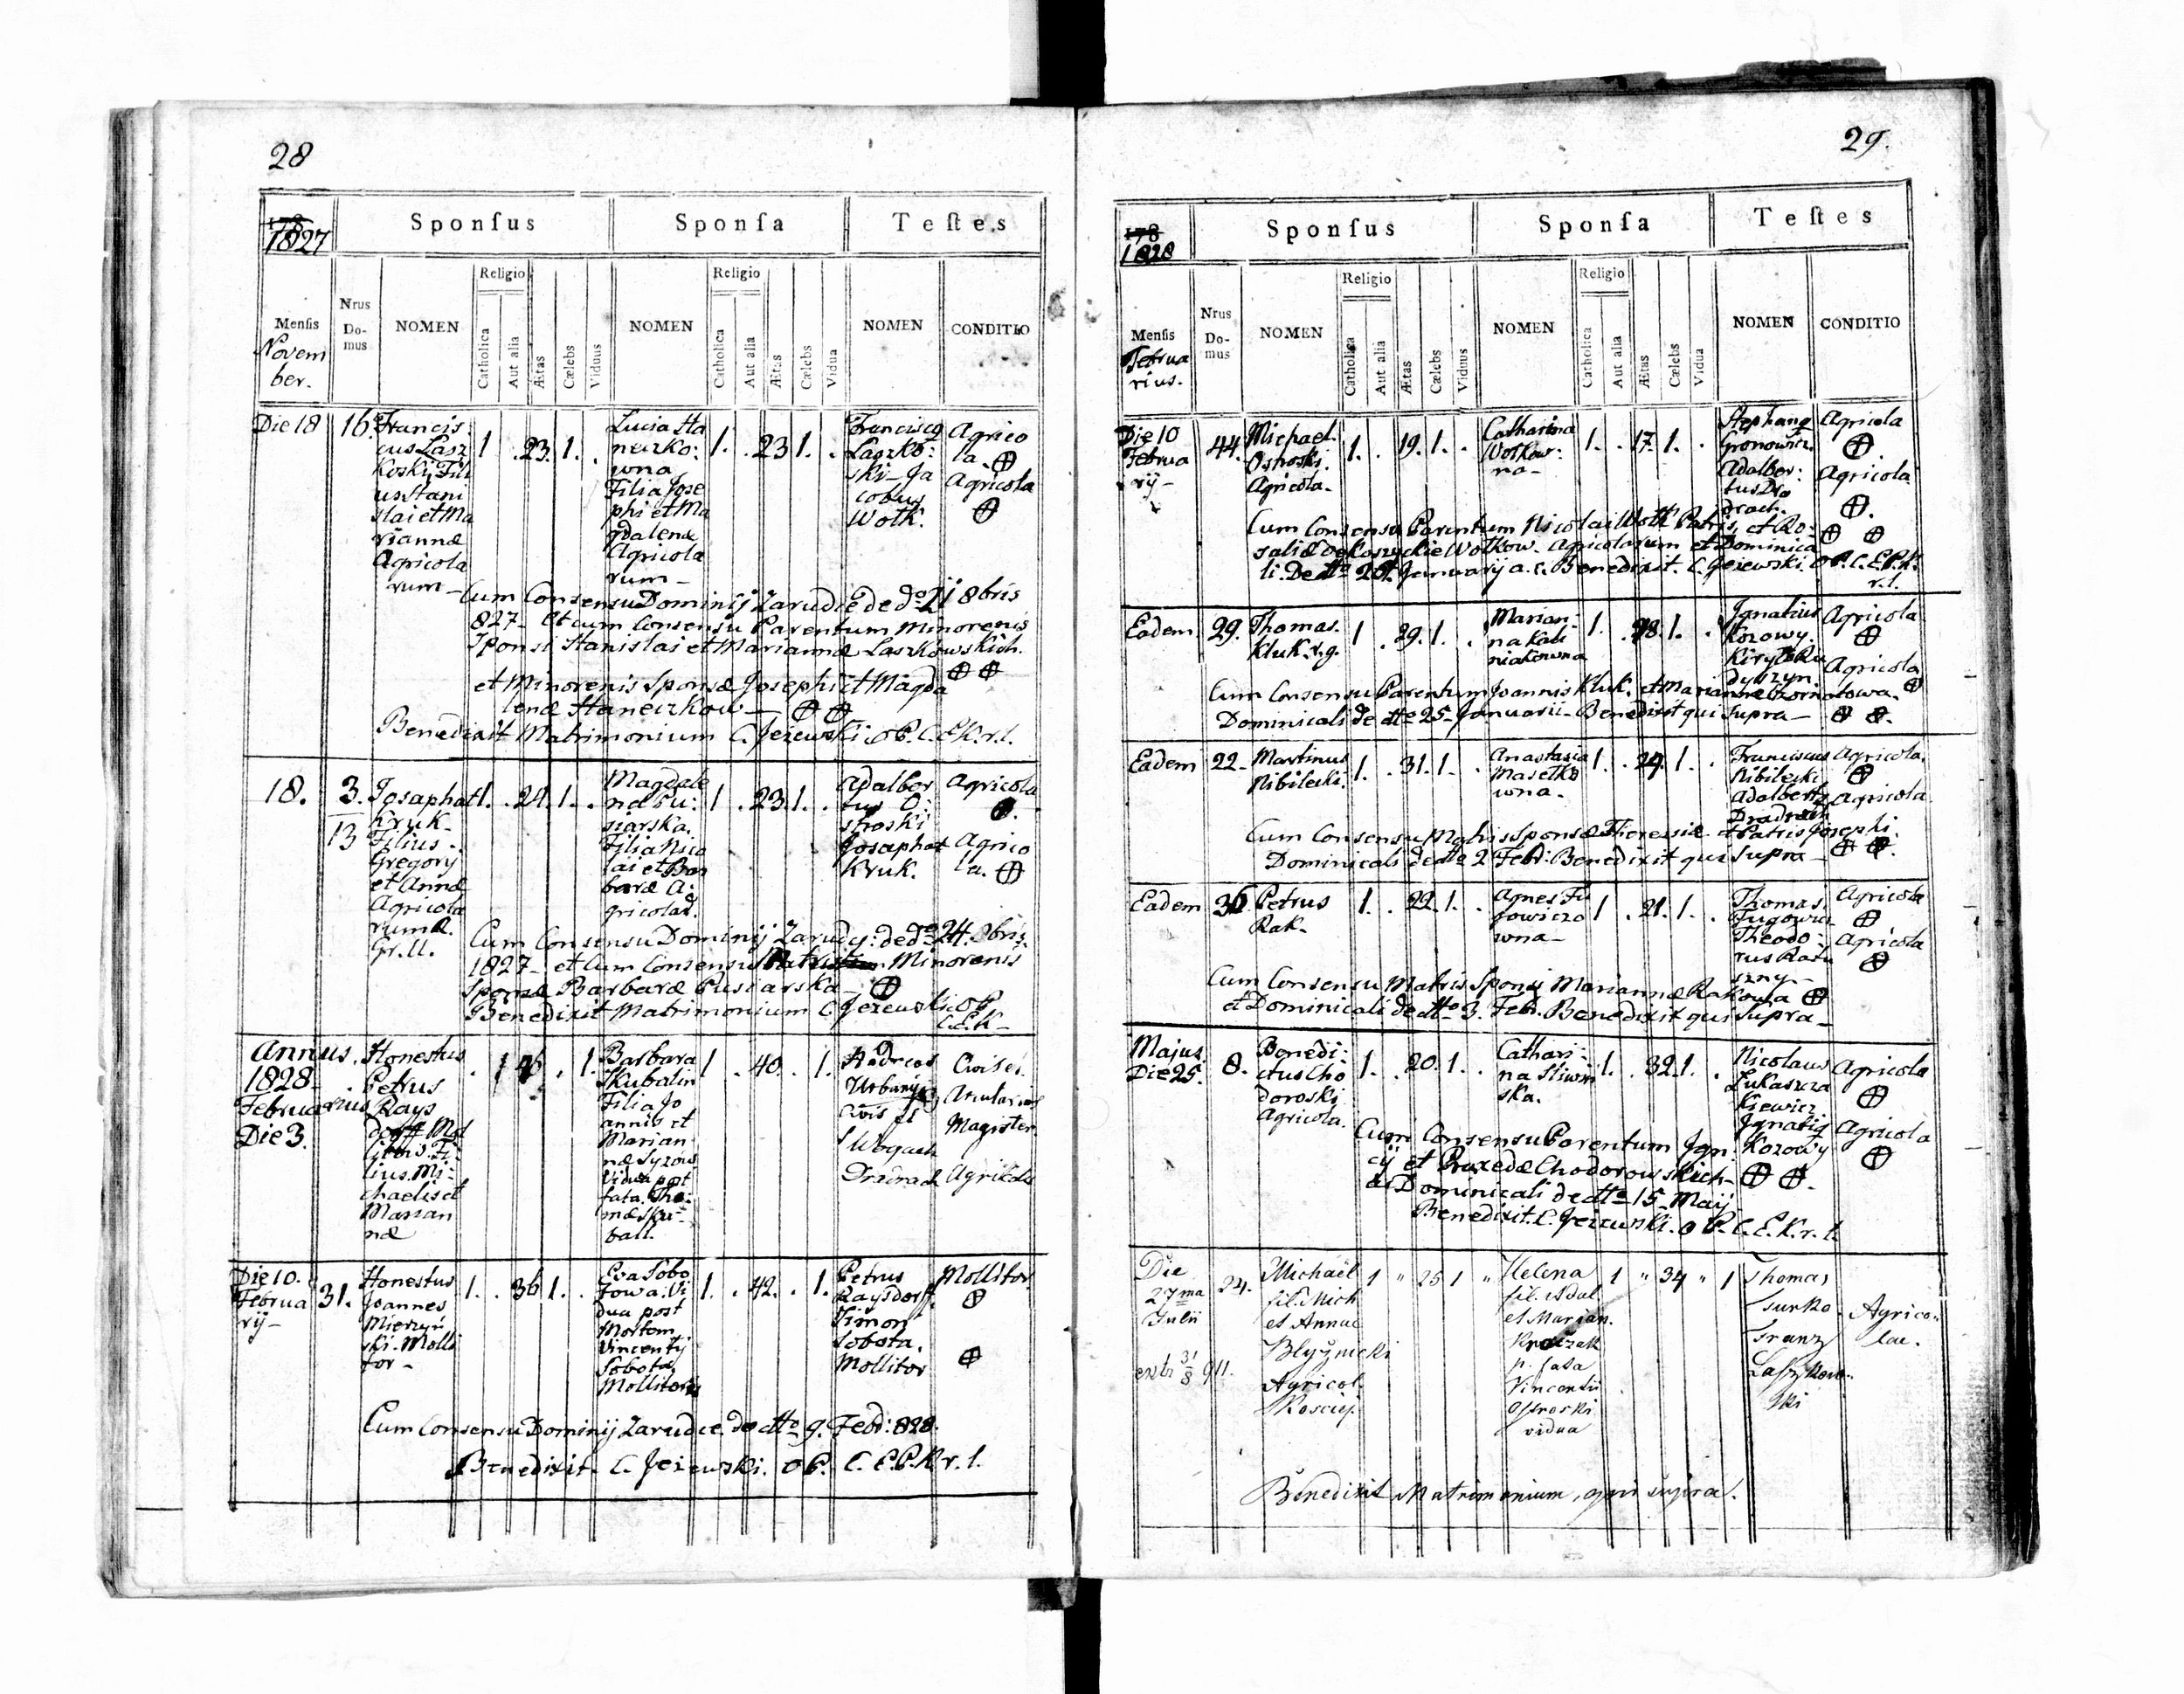 28
178
1827
Sponſus
Sponſa
Teſtes
Menſis
Novem
ber.
Nrus
Do-
mus
NOMEN
Religio
Catholica
Aut alia
Ætas
Cælebs
Viduus
NOMEN
Religio
Catholica
Aut alia
Ætas
Cælebs
Vidua
NOMEN
CONDITIO
Die 18
16.
Francis
cus Lasz
koski, Fili
us Stani
slai et Ma
riannæ
Agricola
rum-
1 . 23. 1. .
Lucia Ha
neczko:
wna
Filia Jose
phi et Ma
gdalenæ
Agricola
rum-
1. . 23 1. .
Laszko:
ski- Ja
cobus
Wotk.
Agrico
la. ⊕
Agricola
⊕
Cum Consensu Dominij Zarudie de do 21 8bris
827- et cum Consensu Parentum Minorenis
Sponsi Stanislai et Mariannæ Laszkowskich.
⊕ ⊕
et Minorenis Sponsæ Josephi et Magda
lenæ Haneczkow- ⊕ ⊕
Benedixit Matrimonium C. Jezewski. O P. C. E K. r. l.
18.
3.
13
Josaphat
Kruk-
Filius
Gregory
et Annæ
Agricola
rum.
Gr. U.
1. . 24. 1. .
Magdale
na Pu:
siarska.
Filia Nico
lai et Bar
baræ A:
gricolar.
1 . 23. 1. .
Adalber
tus O:
stroski
Josaphat
Kruk.
Agricola
⊕.
Agrico
la. ⊕
Cum Consensu Dominij Zarudy: de do 24. 8bris.
1827- et Cum Consensu Minorenis
Sponsæ Barbaræ Pusiarska- ⊕
Benedixit Matrimonium C. Jezewski O P.
C. E. K-
Annus.
1828-
Februarius
Die 3.
Honestus
Petrus
Rays
dorff Mol
litor. Fi-
lius Mi-
chaelis et
Marian
næ
Barbara
Skubalin
Filia Jo
annis et
Marian
næ Syrow
Vidua post
fata Tho:
mæ Sku-
ball.
1 . 40. . 1.
Andreas
Urbanij
Civis et
Drozrach
Magister
Agricola
Die 10.
Februa
rij-
31.
Honestus
Joannes
Mierzyń
ski. Molli
tor-
1. . 36 1. .
Eva Sobo
towa. Vi
dua post
Mortem
Vincentij
Sobota,
Mollitoris
1. . 42. . 1.
Petrus
Raysdorff.
Simon
Sobota,
Mollitor
Mollitor
⊕
⊕
Cum Consensu Dominij Zarudie. de dtto 9. Febr: 828.
Benedixit. C. Jezewski. O P. C. E. P. K r. l.
29.
178
1828
Sponſus
Sponſa
Teſtes
Menſis
Februa
rius.
Nrus
Do-
mus
NOMEN
Religio
Catholica
Aut alia
Ætas
Cælebs
Viduus
NOMEN
Religio
Catholica
Aut alia
Ætas
Cælebs
Vidua
NOMEN
CONDITIO
Die 10
Februa
rij-
44.
Michael.
Ostroski.
Agricola-
1. . 19. 1. .
Catharina
Wotkow:
na-
1. . 17. 1. .
Gronowicz.
Adalber:
tus Dro
zrach.
Agricola
⊕.
Agricola
⊕.
Cum Consensu Parentum Nicolai Wotk Patris, et Ro- ⊕ ⊕
Agricolarum et Dominica
li. De dtto Januarij a. c. Benedixit. C. Jezewski. O P. C. E. P. K.
r. l.
Eadem
29.
Thomas.
Kluk. r. g.
1 . 29. 1. .
Marian:
na Kali
niakowna
1. . 1. .
Ignatius
Kozowy.
Kirylo Ra
dyszyn.
Agricola
⊕
Agricola
⊕
Cum Consensu Parentum Joannis Kluk. et Mariannæ
Dominicali de dtto 25- Januarii- Benedixit qui Supra- ⊕ ⊕.
Eadem
22-
Martinus
Nibilecki.
1. . 31. 1. .
Anastasia
Masełko
wna.
1. . 24. 1. .
Franciscus
Nibilecki
Adalbertus
Drozrach
Agricola.
⊕
Agricola
Cum Consensu Matris Sponsæ Theresiæ et Patris Josephi.
Dominicali de dtto 2 Febr: Benedixit qui Supra- ⊕ ⊕.
Eadem
36
Petrus
Rak-
1. . 22. 1. .
Agnes Fu
gowiczo
wna-
1 . 21. 1. .
Thomas
Fugowicz
Theodo:
rus Ratu
szny-
Agricola
⊕
Agricola
⊕
Cum Consensu Matris Sponsi Mariannæ Rakowa ⊕
et Dominicali de dtto 3. Febr. Benedixit qui Supra-
Majus.
Die 25.
8.
Benedi:
ctus Cho
doroski
Agricola.
1. . 20. 1. .
Cathari-
na Sliwi
ska.
1. . 32. 1. .
Nicolaus
Łukaszca
kiewicz
Ignatius
Kozowy
Agricola
⊕
Agricola
⊕
Cum Consensu Parentum Ign:
cij et Praxedæ Chodorowskich- ⊕ ⊕.
et Dominicali de dtto 15- Maij
Benedixit. C. Jezewski. O P. C. E. K. r. l.
Die
27ma
Julii
24.
Michaël
fil. Mich
et Annae
Blyźnicki
Agricol.
1 " 25 1 "
Helena
fil. Adal.
et Marian.
p. fata
Vincentii
Ostroski
vidua
1 " 34 " 1
Thomas
Franz
Laszkow-
ski
Agrico-
lae.
extr 31/8 911.
Benedixit Matrimonium, qui supra.